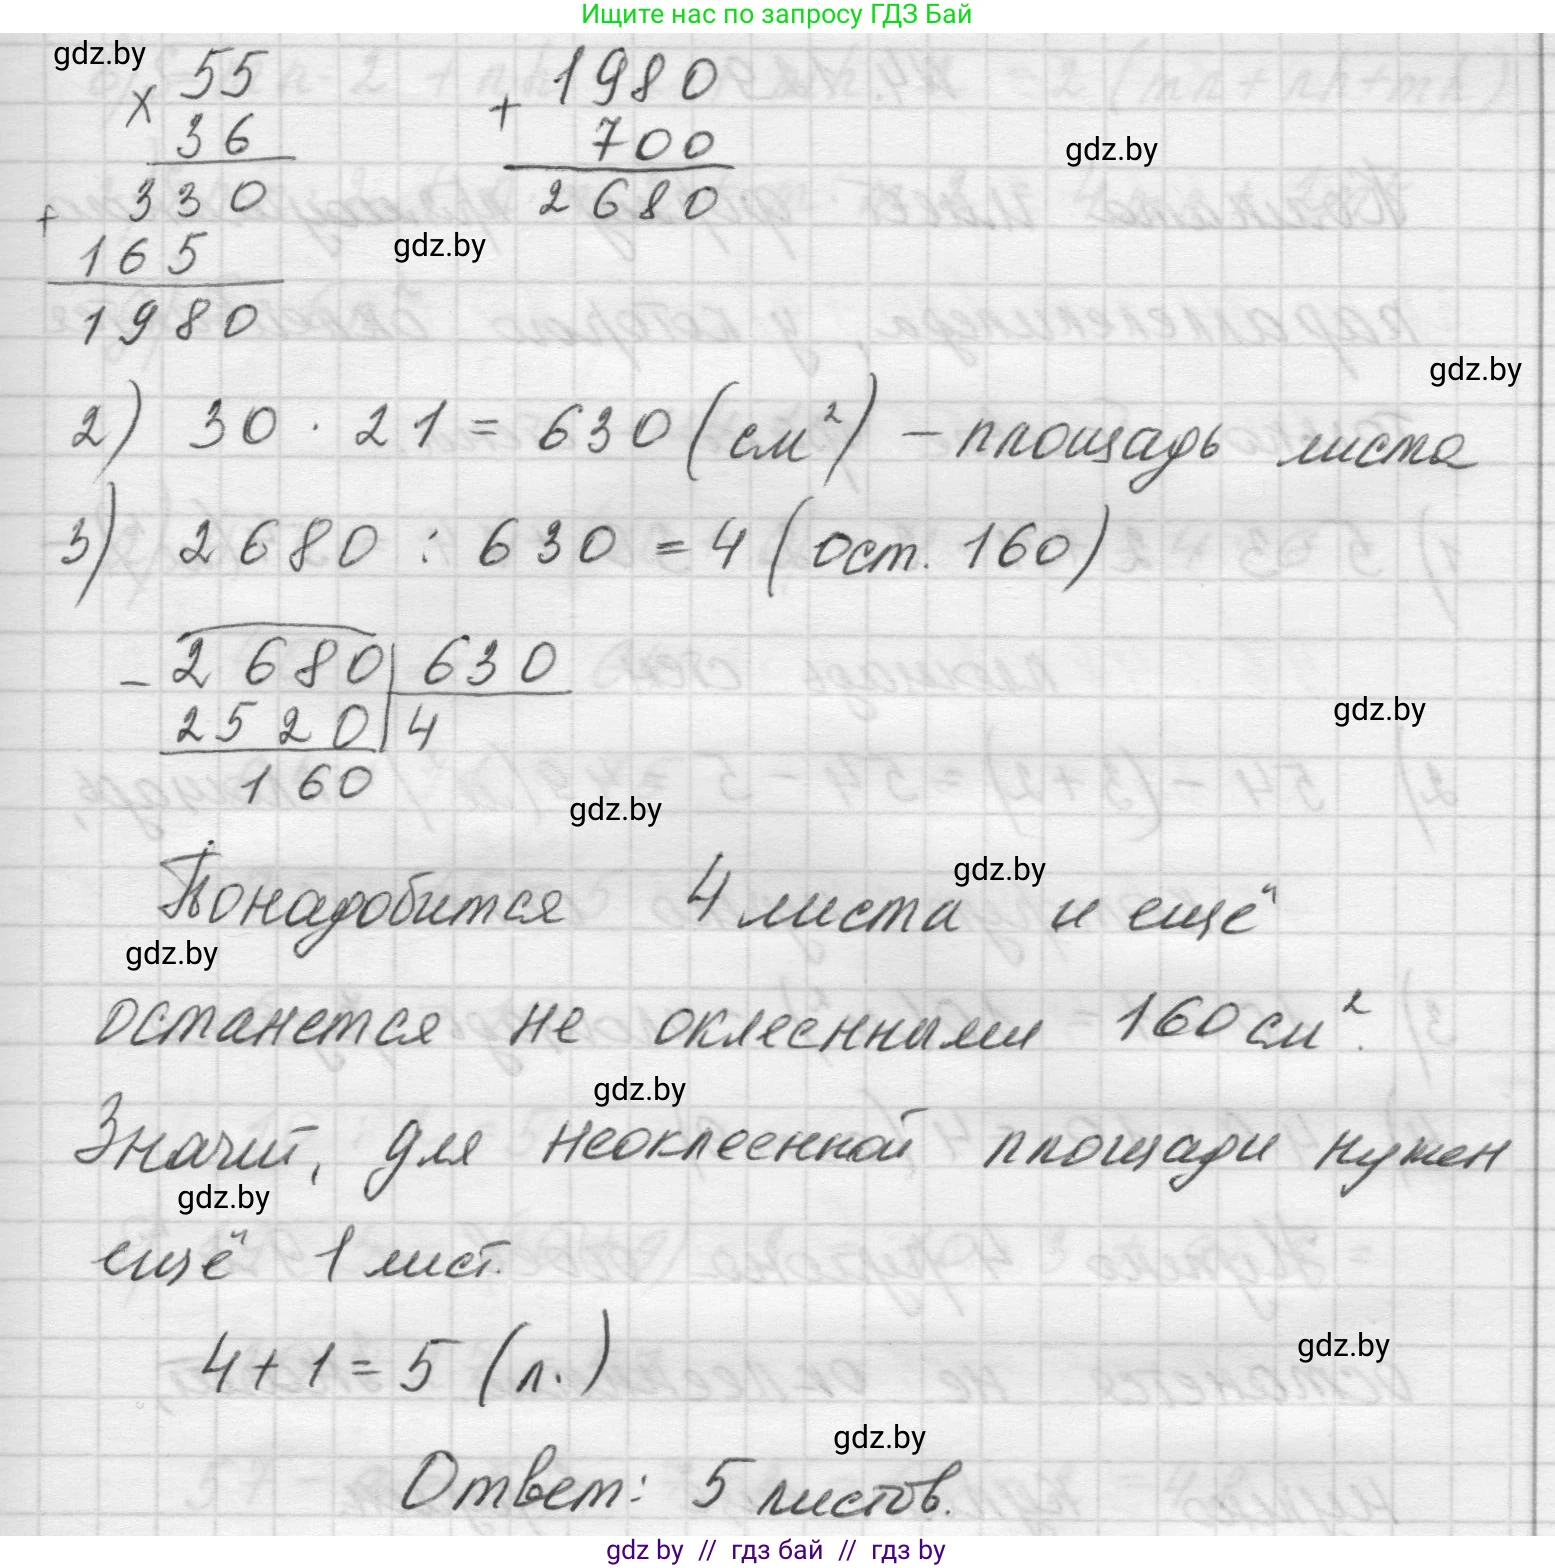 Ищите нас по запросу ГДЗ Бай
gdz.by
× 55
36
330
+ 165
1980
+ 1980
700
2680
gdz.by
gdz.by
gdz.by
2) 30 · 21 = 630 (см²) – площадь листа
3) 2680 : 630 = 4 (ост. 160)
– 2680 | 630
2520 | 4
160
gdz.by
gdz.by
gdz.by
Понадобится 4 листа и ещё
gdz.by
останется не оклеенными 160 см².
gdz.by
Значит, для неоклеенной площади нужен
gdz.by
ещё 1 лист.
4 + 1 = 5 (л.)
gdz.by
gdz.by
Ответ: 5 листов.
gdz by // гдз бай // гдз by